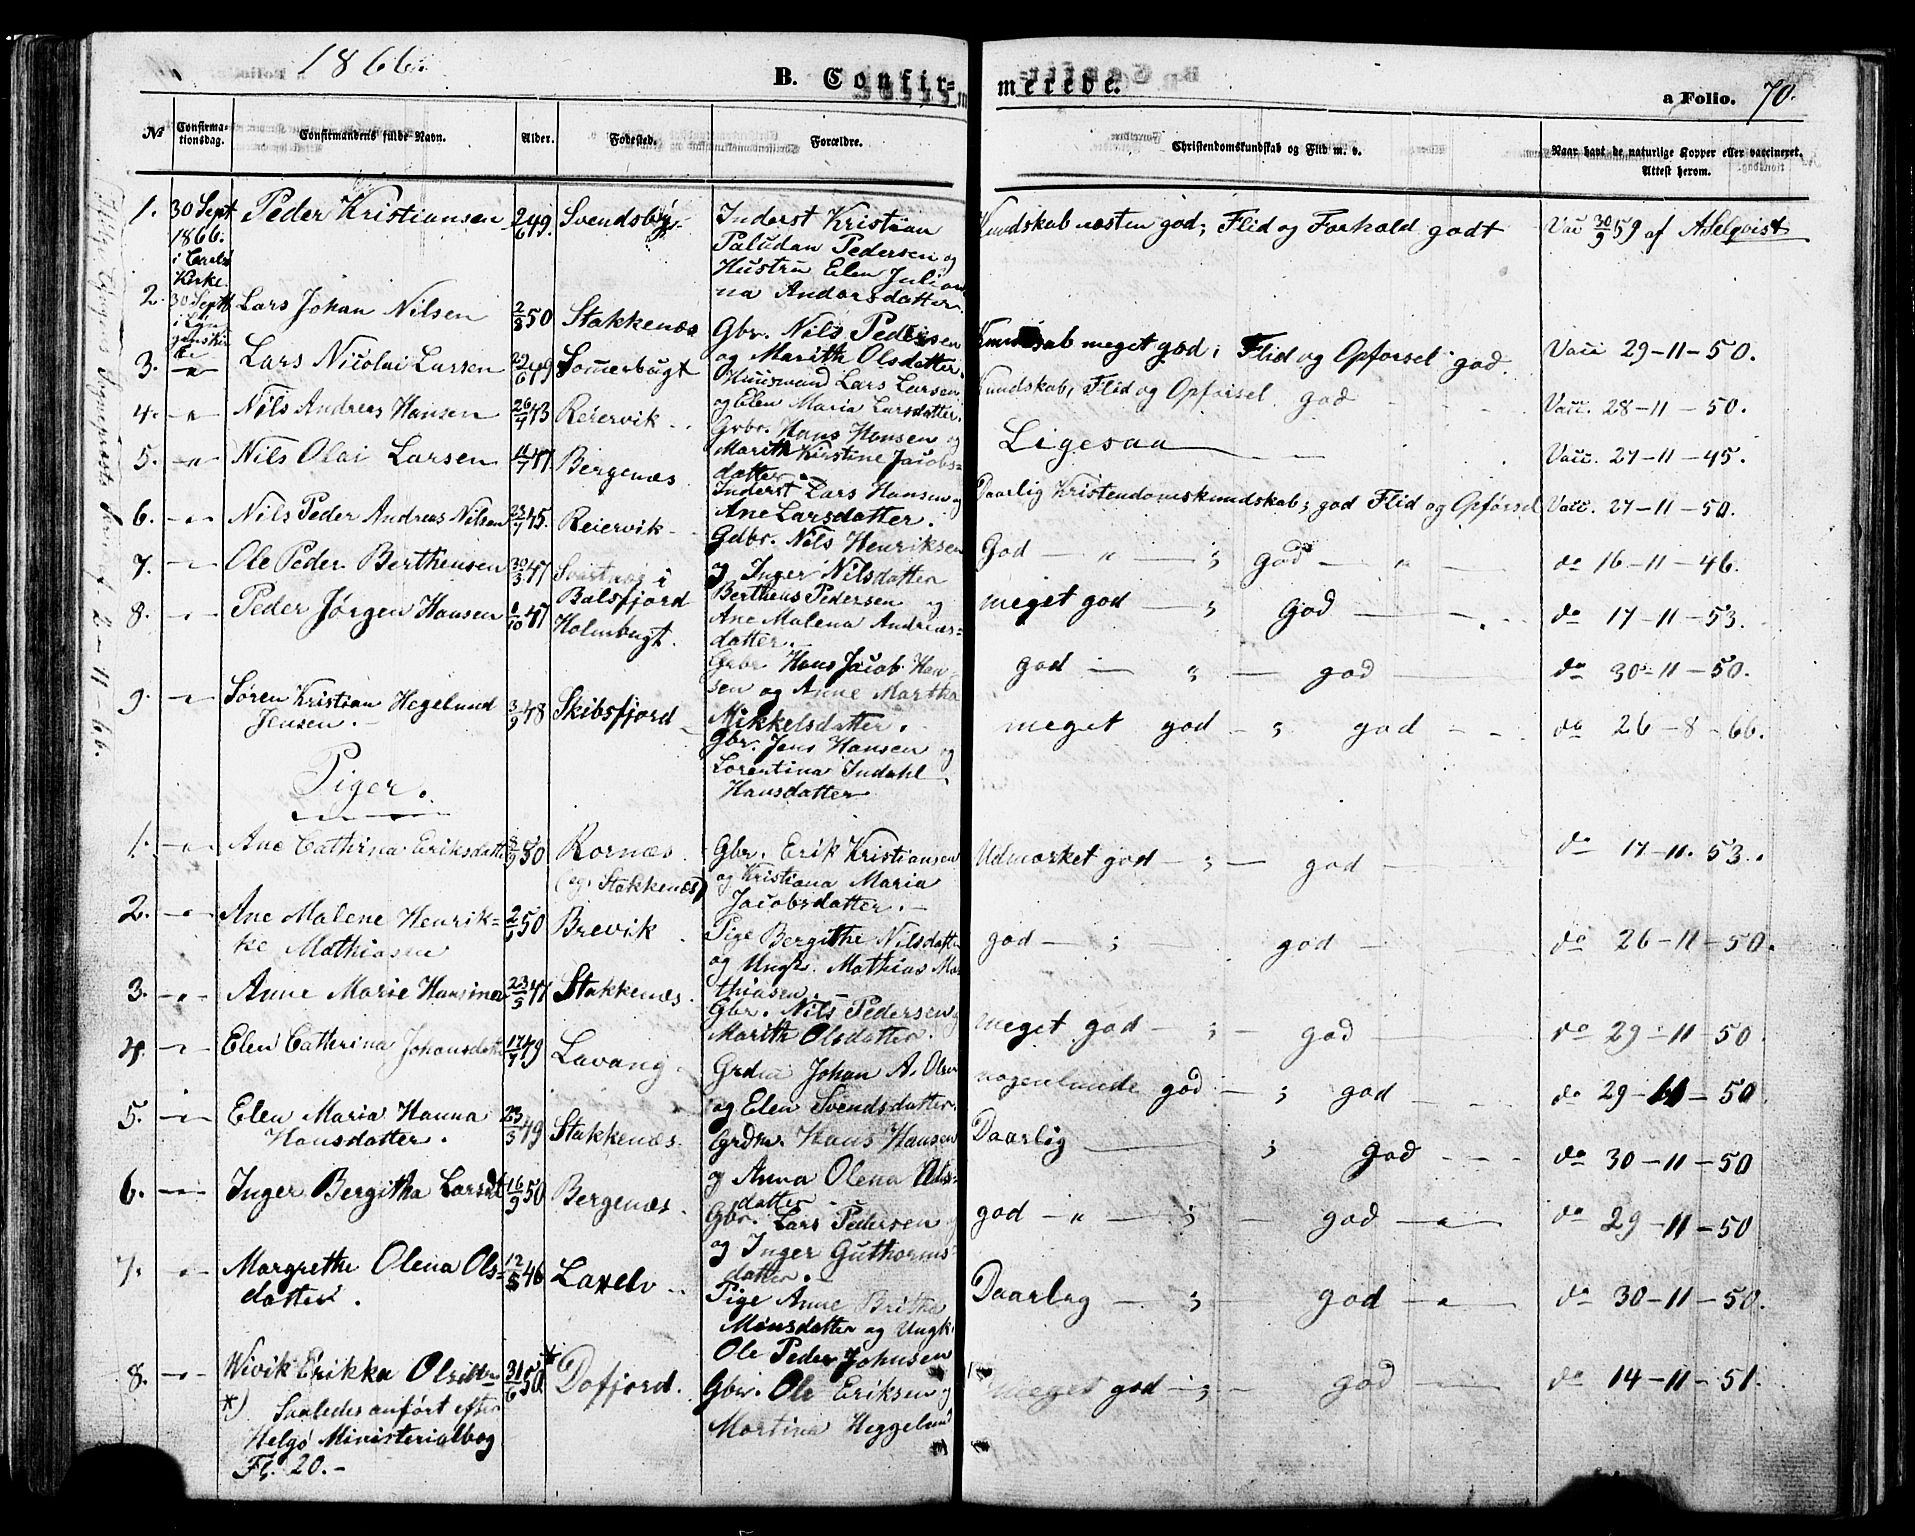 1866.
B. Confir=
merede.
a Folio. 70.
No
Confirma-
tionsdag.
Confirmandens fulde Navn.
Alder.
Fødested.
Forældre.
Christendomskundskab og Flid m. v.
Naar havt de naturlige Kopper eller vaccineret.
Attest herom.
1. 30 Sept 1866. i Carls Kirke Peder Kristiansen 2/6 49. Svendsby
Inderst Kristian
Paludan Pedersen og
Hustru Elen Julian
na Andersdatter.
Kundskab næsten god; Flid og Forhold godt
Vac 30/9 59 af ASelqvist
2. 30 Sept Lars Johan Nilsen 2/8 50 Stakkenæs
Gbr. Nils Pedersen
og Marith Olsdatter.
Kundskab meget god; Flid og Opførsel god.
Vacc 29-11-50.
3. -"- Lars Nicolai Larsen 22/6 49 Sommerbugt
Huusmand Lars Larsen
og Elen Maria Larsdatter.
Kundskab, Flid og Opførsel god
Vacc. 28-11-50.
4. -"- Nils Andreas Hansen 26/7 43 Reiervik
Grbr. Hans Hansen og
Marith Kirstine Jacobs=
datter.
Ligesaa
Vacc. 27-11-45.
5. -"- Nils Olai Larsen 11/7 47 Bergenæs
Inderst Lars Hansen og
Ane Larsdatter.
Daarlig Kristendomskundskab; god Flid og Opførsel
Vacc. 27-11-50.
6. -"- Nils Peder Andreas Nilsen 23/7 45. Reiervik
Gdbr. Nils Henriksen
og Inger Nilsdatter
God - " - ; god - " -
do 16-11-46.
7. -"- Ole Peder Berthensen 30/3 47 Svartnæs i
Balsfjord
Bertheus Pedersen og
Ane Malena Andreas=
datter.
meget god - ; god -
do 17-11-53.
8. -"- Peder Jørgen Hansen 1/10 47 Holmbugt.
Grbr Hans Jacob Han
sen og Anne Martha
Mikkelsdatter.
god - " - god
do 30-11-50.
9. -"- Søren Kristian Hegelund
Jensen. 3/9 48 Skibsfjord
Gbr. Jens Hansen og
Lorentina Indahl
Hansdatter
meget god - ; god - -
do 26-8-66.
Piger.
1. -"- Ane Cathrina Eriksdatte 50 Rornæs
(eg. Stakkenæs)
Gbr. Erik Kristiansen
og Kristiana Maria
Jacobsdatter.
Udmærket god - ; - god -
do 17-11-53.
2. -"- Ane Malene Henrik=
ke Mathiasen 50 Brevik
Pige Bergithe Nilsdatter
og Ungk. Mathias Ma
thiasen.
god - ; god -
do 26-11-50.
3. -"- Anne Marie Hansine 23/5 47 Stakkenæs.
Gbr. Nils Pedersen og
Marith Olsdatter.
meget god - ; - god
do 29-11-50
4. -"- Elen Catherina Johansdatte 17/7 49 Lavang
Johan A. Olsen
og Elen Svendsdatter.
nogenlunde god - ; god
do 29-11-50
5. -"- Elen Maria Hanna
Hansdatter. 23/3 49 Stakkenæs.
Grdm. Hans Hansen
og Anna Olena Ols=
datter
Daarlig ; god - - -
do 30-11-50
6. -"- Inger Bergitha Larsdt 16/9 50 Bergenæs.
Gbr. Lars Pedersen og
og Inger Guthorms=
datter.
god - " - ; - god - " -
do 29-11-50
7. -"- Margrethe Olena Ols=
datter. 12/8 46 Lavelv
Pige Anne Britha
Monsdatter og Ungk.
Ole Peder Johnsen
Daarlig - ; - god - " -
do 30-11-50.
8. -"- Wivik Erikka Olsdttr 31/6 50* Dofjord.
Gbr. Ole Eriksen og
Martina Heggelund
meget god - ; - god -
do 14-11-51.
*) Saaledes anført efter
Helgø Ministerialbog
Fl. 20.-